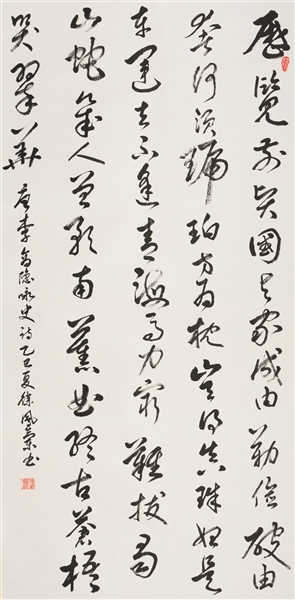 歷覽前贤國与家成由勤儉破由
奢何须琥珀方为枕豈得真珠始是
车運去不逢青海马力窮難拔蜀
山蛇幾人曾預南薰曲終古蒼梧
哭翠華
唐李商隐咏史诗乙巳夏書